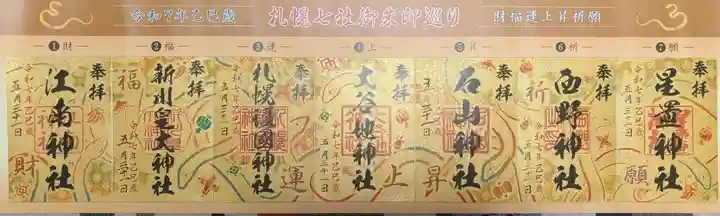 令和7年乙巳歳
札幌七社御朱印巡り
財福運上昇祈願
❶財
❷福
❸運
❹上
❺昇
❻祈
❼願
奉拝
江南神社
令和七年乙巳歳
五月三十一日
財
奉拝
新川皇大神社
令和七年乙巳歳
五月三十一日
福
奉拝
札幌護國神社
令和七年乙巳歳
五月三十一日
運
奉拝
大谷地神社
令和七年乙巳歳
五月三十一日
上
奉拝
石山神社
令和七年乙巳歳
五月三十一日
昇
奉拝
西野神社
令和七年乙巳歳
五月三十一日
祈
奉拝
星置神社
令和七年乙巳歳
五月三十一日
願